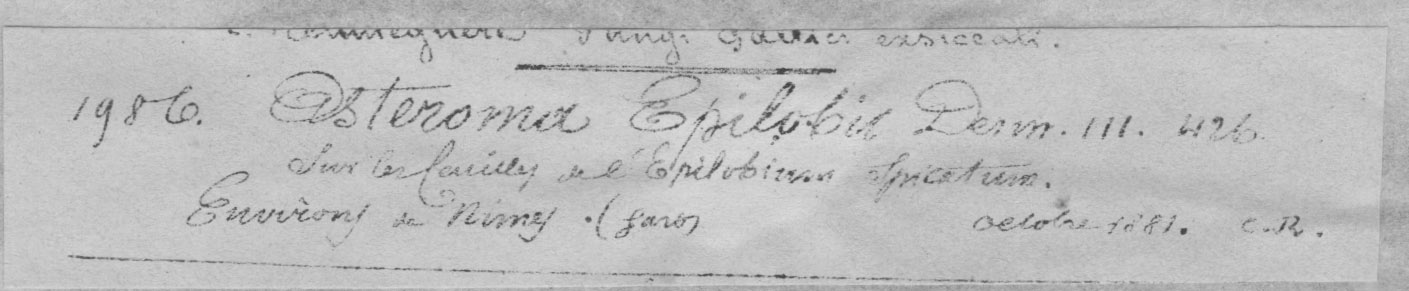 C. Roumeguère Fungi Gallici exsiccati.
1986. Asteroma Epilobii Desm. III. 426.
Sur les feuilles de l'Epilobium spicatum.
Environs de Nimes. (Gard)
octobre 1881. C.R.